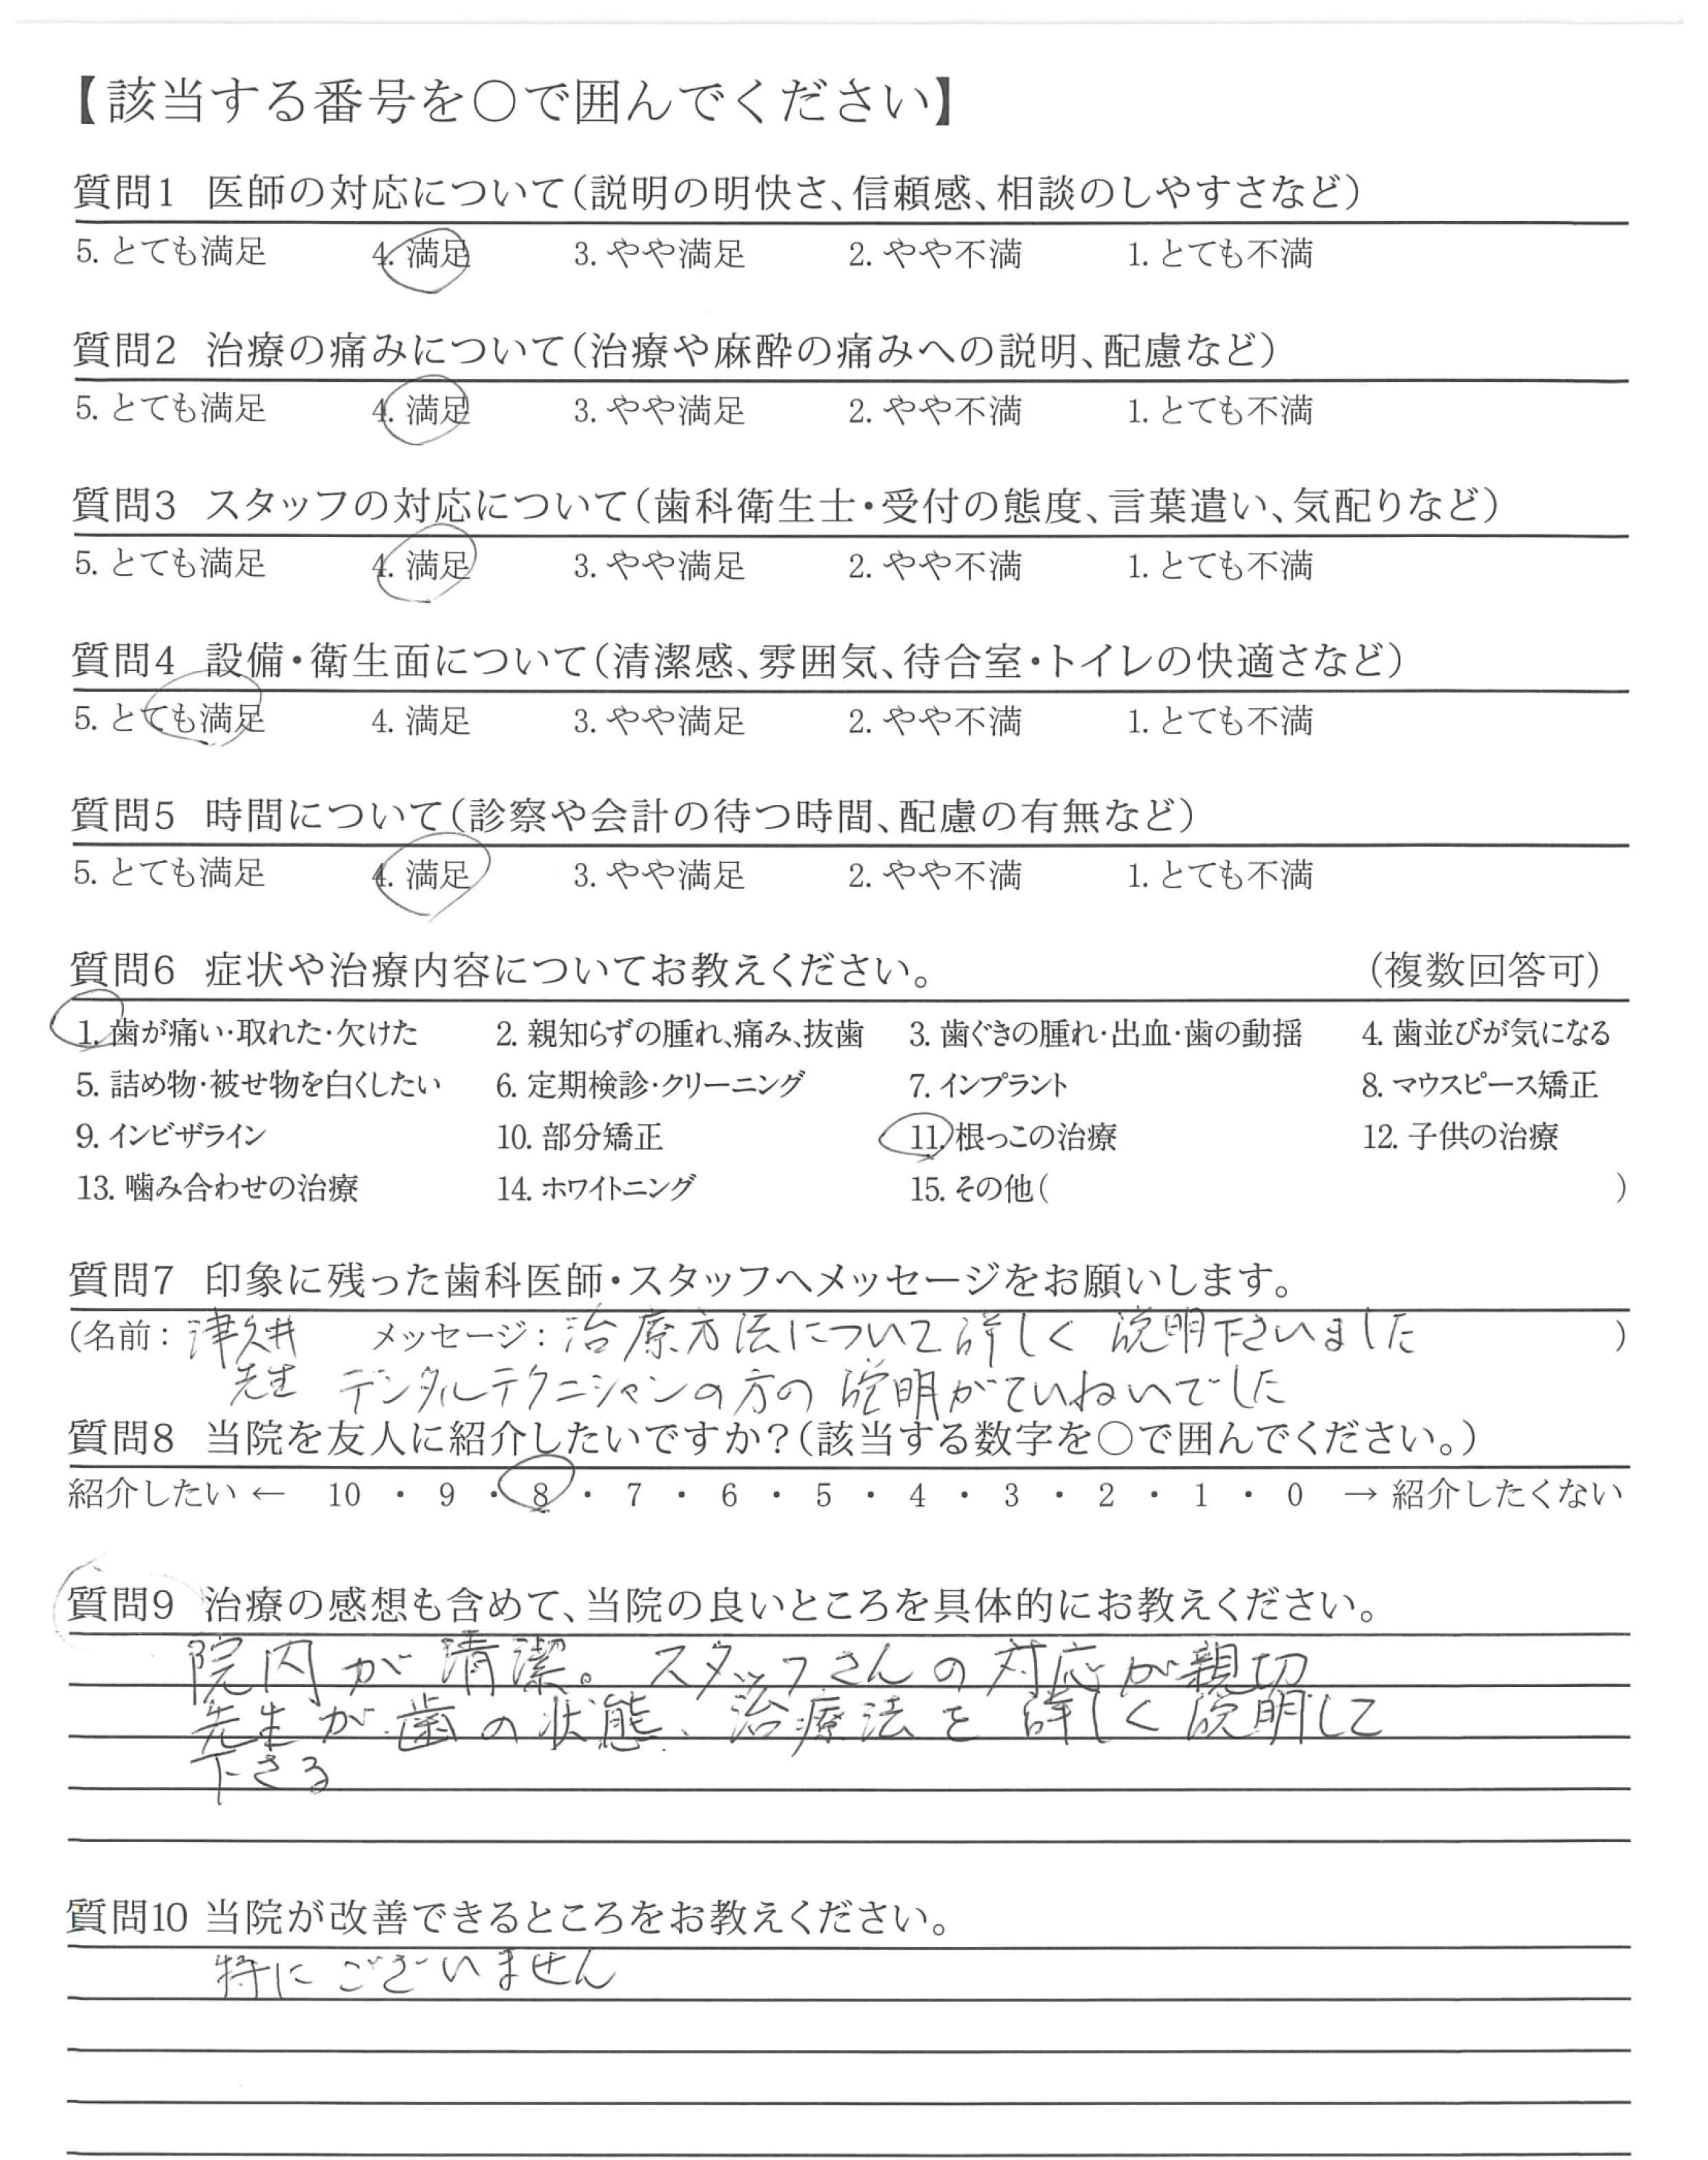 【該当する番号を○で囲んでください】
質問1 医師の対応について(説明の明快さ、信頼感、相談のしやすさなど)
5. とても満足 4. 満足 3. やや満足 2. やや不満 1. とても不満
質問2 治療の痛みについて(治療や麻酔の痛みへの説明、配慮など)
5. とても満足 4. 満足 3. やや満足 2. やや不満 1. とても不満
質問3 スタッフの対応について(歯科衛生士・受付の態度、言葉遣い、気配りなど)
5. とても満足 4. 満足 3. やや満足 2. やや不満 1. とても不満
質問4 設備・衛生面について(清潔感、雰囲気、待合室・トイレの快適さなど)
5. とても満足 4. 満足 3. やや満足 2. やや不満 1. とても不満
質問5 時間について(診察や会計の待つ時間、配慮の有無など)
5. とても満足 4. 満足 3. やや満足 2. やや不満 1. とても不満
質問6 症状や治療内容についてお教えください。 (複数回答可)
1. 歯が痛い・取れた・欠けた 2. 親知らずの腫れ、痛み、抜歯 3. 歯ぐきの腫れ・出血・歯の動揺 4. 歯並びが気になる
5. 詰め物・被せ物を白くしたい 6. 定期検診・クリーニング 7. インプラント 8. マウスピース矯正
9. インビザライン 10. 部分矯正 11. 根っこの治療 12. 子供の治療
13. 噛み合わせの治療 14. ホワイトニング 15. その他( )
質問7 印象に残った歯科医師・スタッフへメッセージをお願いします。
(名前: 津久井 メッセージ: 治療方法について詳しく説明下さいました )
先生 デンタルテクニシャンの方の説明がていねいでした
質問8 当院を友人に紹介したいですか?(該当する数字を○で囲んでください。)
紹介したい ← 10 ・ 9 ・ 8 ・ 7 ・ 6 ・ 5 ・ 4 ・ 3 ・ 2 ・ 1 ・ 0 → 紹介したくない
質問9 治療の感想も含めて、当院の良いところを具体的にお教えください。
院内が清潔。スタッフさんの対応が親切
先生が歯の状態、治療法を詳しく説明して
下さる
質問10 当院が改善できるところをお教えください。
特にございません